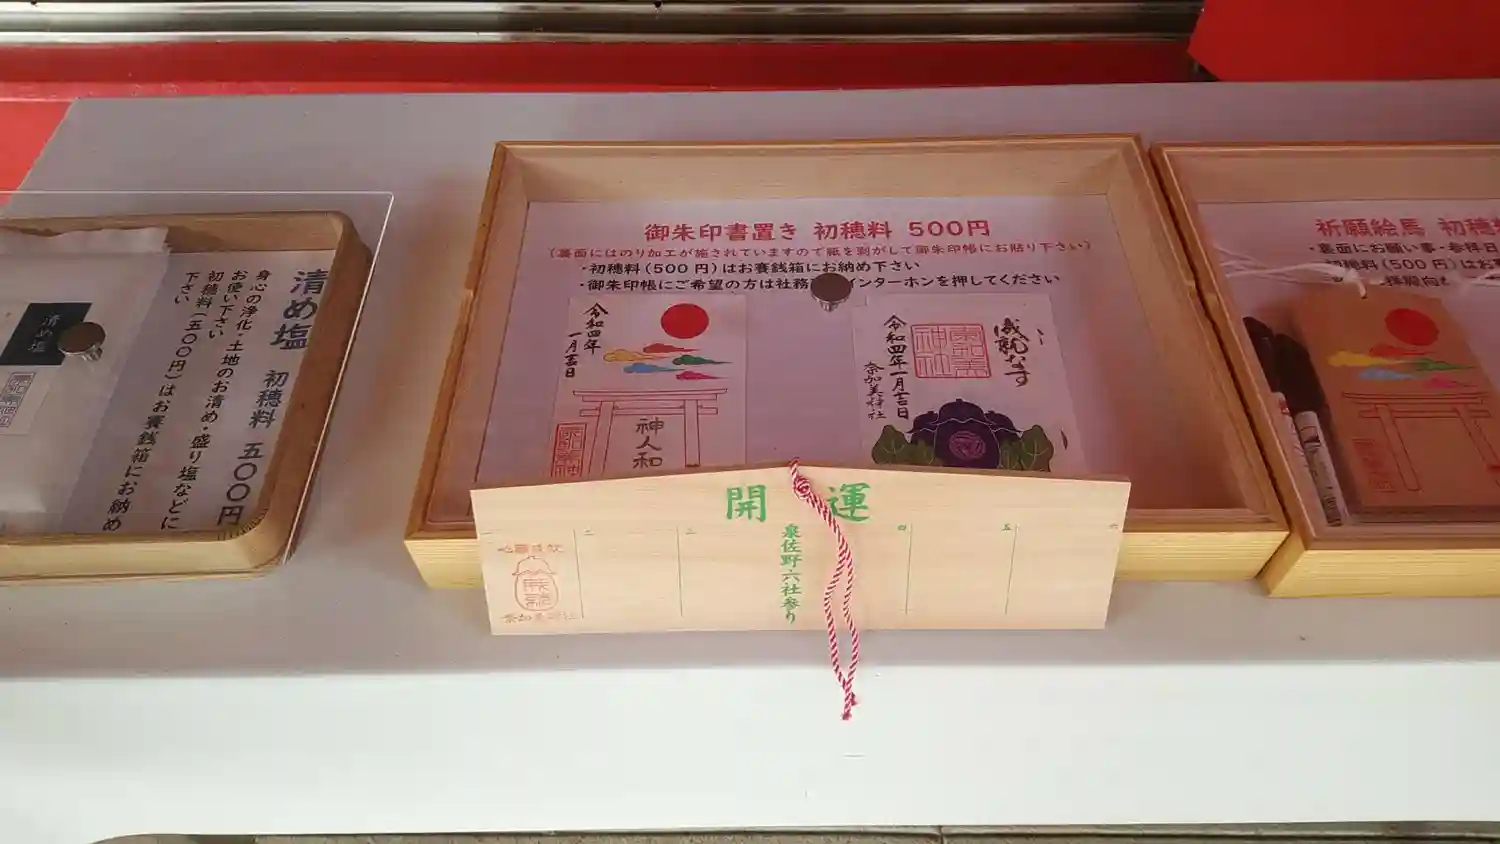 清め塩 初穂料 五〇〇円
身心の浄化・土地のお清め・盛り塩などに
お使い下さい
初穂料(五〇〇円)はお賽銭箱にお納め
下さい
清め塩
御朱印書置き 初穂料 500円
(裏面にはのり加工が施されていますので紙を剥がして御朱印帳にお貼り下さい)
・初穂料(500円)はお賽銭箱にお納め下さい
・御朱印帳にご希望の方は社務 インターホンを押してください
令和四年
一月吉日
神人和
成就なす
令和四年一月吉日
奈加美神社
祈願絵馬 初穂
・裏面にお願い事・参拝日
初穂料(500円)はお
開運
泉佐野・六社参り
一
二
三
四
五
六
心願成就